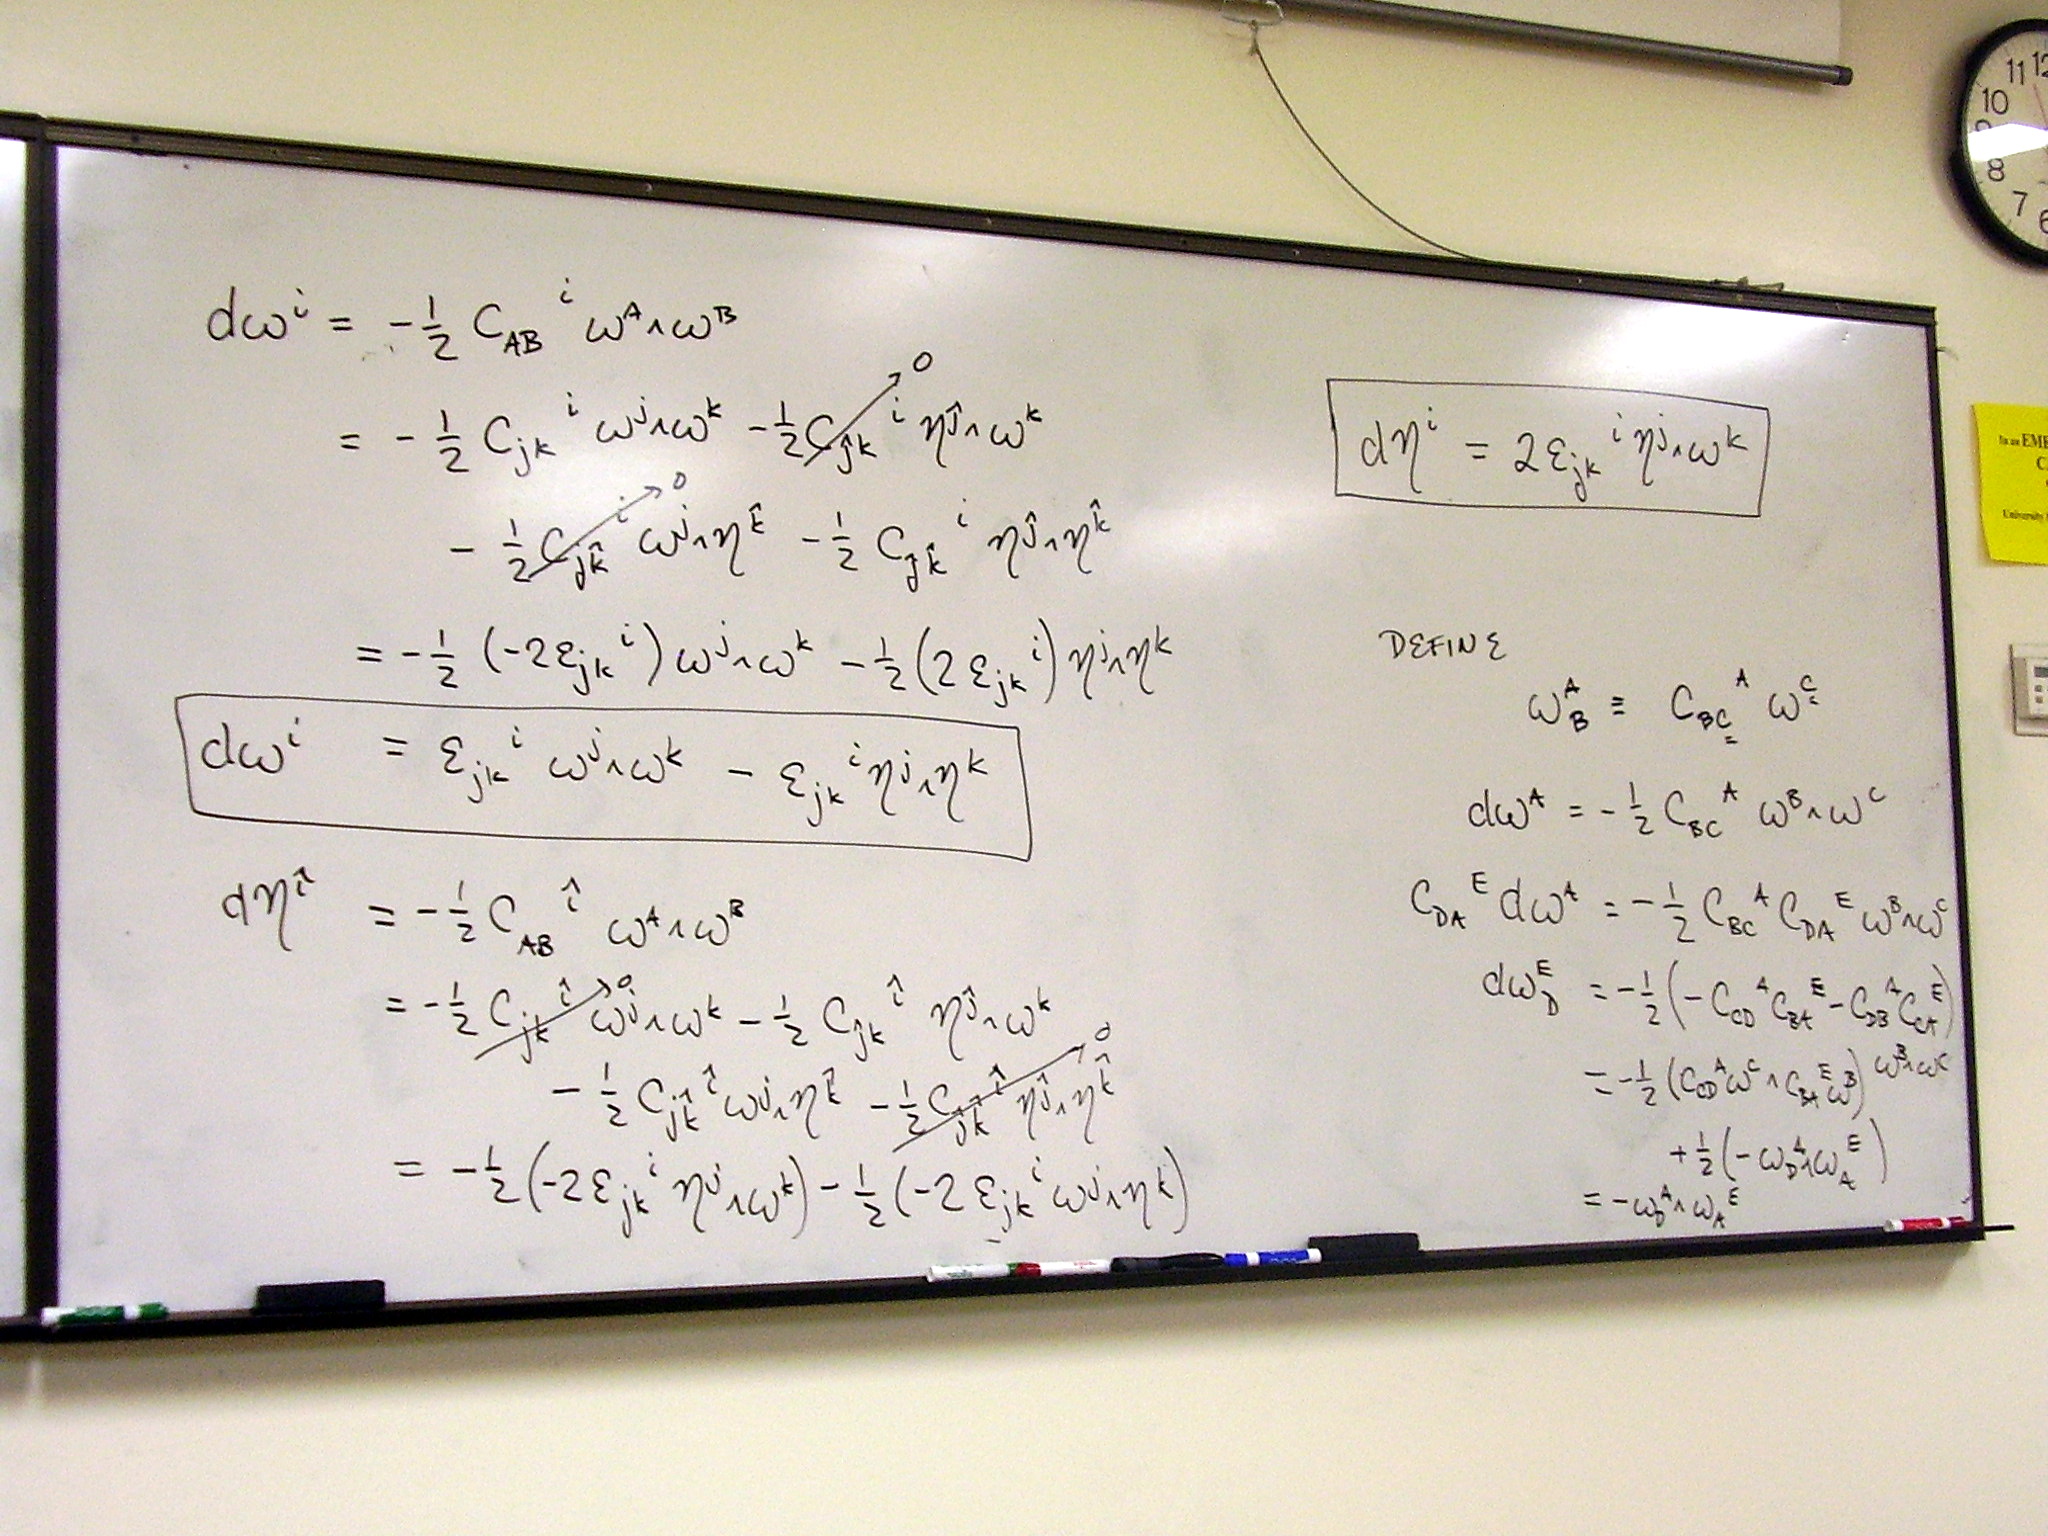 dωⁱ = -½ C_AB ⁱ ω^A ∧ ω^B
= -½ C_jk ⁱ ω^j ∧ ω^k -½ C_ĵk ⁱ η^ĵ ∧ ω^k → 0
- ½ C_jk̂ ⁱ → 0 ω^j ∧ η^k̂ - ½ C_ĵk̂ ⁱ η^ĵ ∧ η^k̂
= -½ (-2ε_jk ⁱ) ω^j ∧ ω^k - ½ (2ε_jk ⁱ) η^j ∧ η^k
dωⁱ = ε_jk ⁱ ω^j ∧ ω^k - ε_jk ⁱ η^j ∧ η^k
dη^î = -½ C_AB ^î ω^A ∧ ω^B
= -½ C_jk ^î → 0 ω^j ∧ ω^k - ½ C_ĵk ^î η^ĵ ∧ ω^k
- ½ C_jk̂ ^î ω^j ∧ η^k̂ - ½ C_ĵk̂ ^î η^ĵ ∧ η^k̂ → 0
= -½ (-2ε_jk ⁱ η^j ∧ ω^k) - ½ (-2ε_jk ⁱ ω^j ∧ η^k)
dηⁱ = 2ε_jk ⁱ η^j ∧ ω^k
DEFINE
ω^A_B ≡ C_BC ^A ω^C
dω^A = -½ C_BC ^A ω^B ∧ ω^C
C_DA ^E dω^A = -½ C_BC ^A C_DA ^E ω^B ∧ ω^C
dω^E_D = -½ (-C_CD ^A C_BA ^E - C_DB ^A C_CA ^E)
ω^B ∧ ω^C
= -½ (C_CD ^A ω^C ∧ C_BA ^E ω^B)
+ ½ (-ω_D ^A ∧ ω_A ^E)
= -ω_D ^A ∧ ω_A ^E
11 12
10
9
8
7
6
In an EME
University